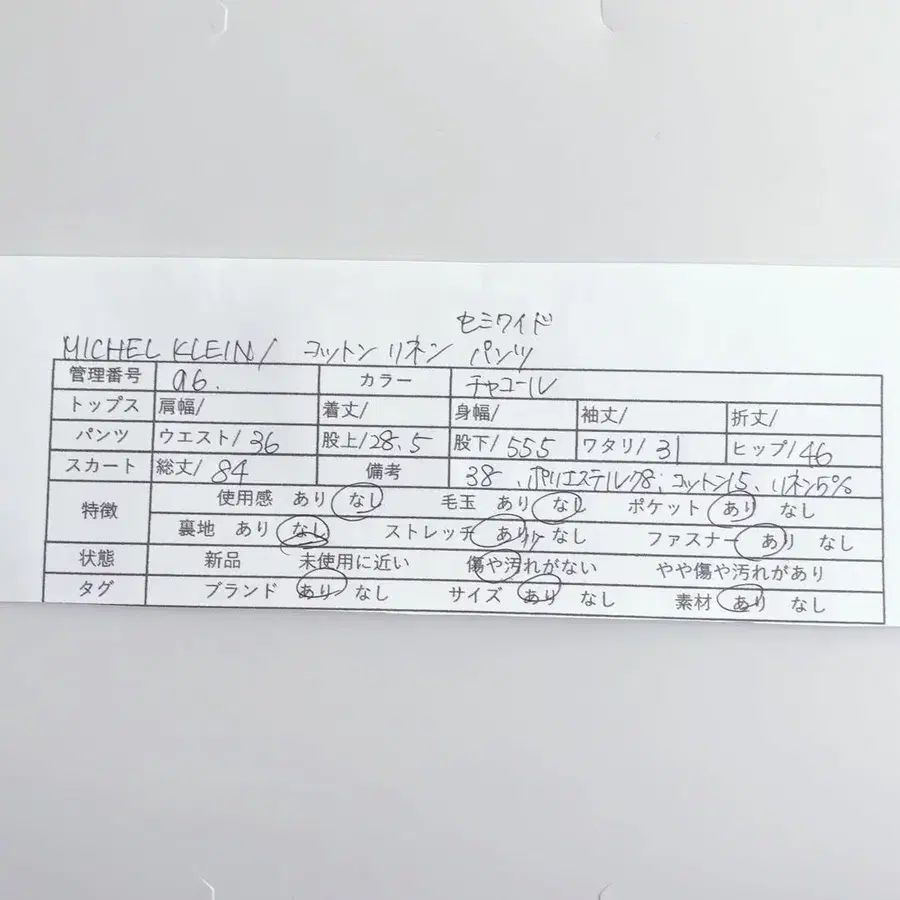 セミワイド
MICHEL KLEIN/ コットン リネン パンツ
管理番号 a6. カラー チャコール
トップス 肩幅/ 着丈/ 身幅/ 袖丈/ 折丈/
パンツ ウエスト/36 股上/28.5 股下/55.5 ワタリ/31 ヒップ/46
スカート 総丈/84 備考 38、ポリエステル78; コットン15、リネン5%
特徴 使用感 あり なし 毛玉 あり なし ポケット あり なし
裏地 あり なし ストレッチ あり なし ファスナー あり なし
状態 新品 未使用に近い 傷や汚れがない やや傷や汚れがあり
タグ ブランド あり なし サイズ あり なし 素材 あり なし